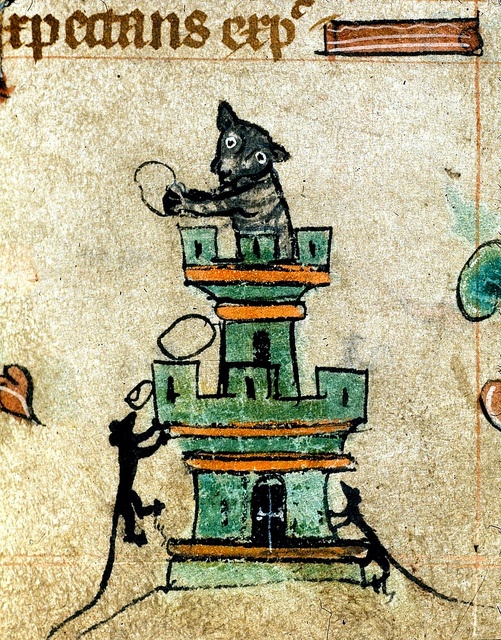 expectans exp